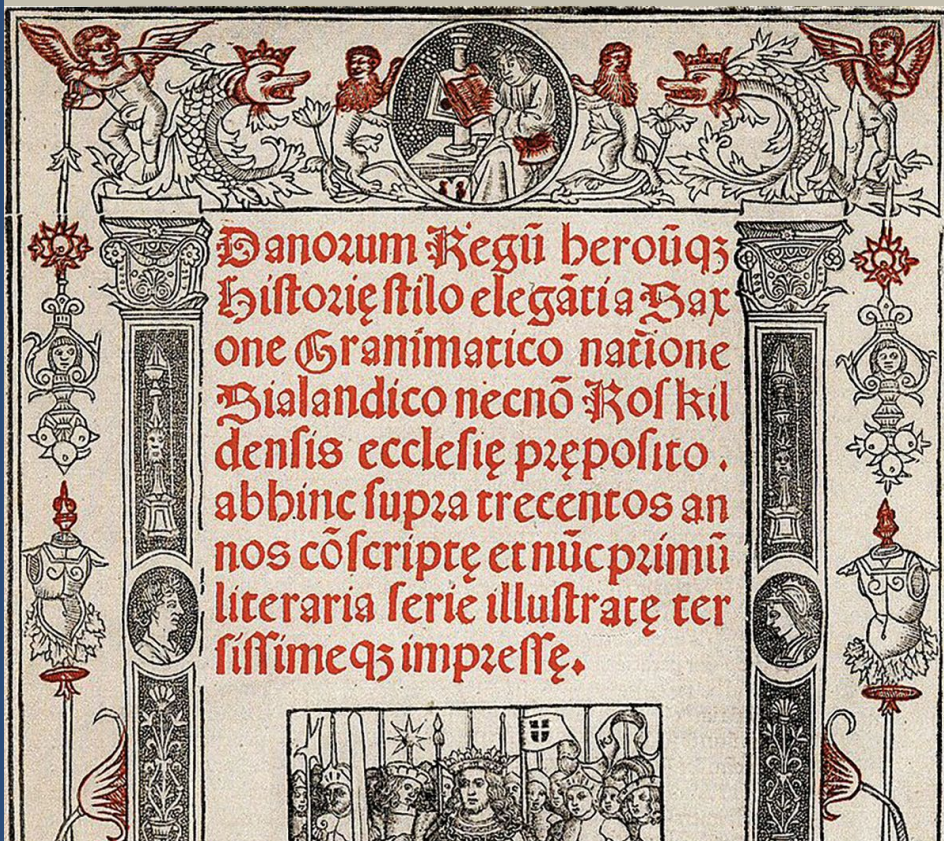 Danorum Regū heroūqꝫ
Hiſtorię ſtilo elegāti a Sax
one Granimatico natiōne
Sialandico necnō Roſkil
denſis eccleſię prępoſito .
abhinc ſupra trecentos an
nos cōſcriptę et nūc primū
literaria ſerie illuſtratę ter
ſiſſimeqꝫ impreſſę.